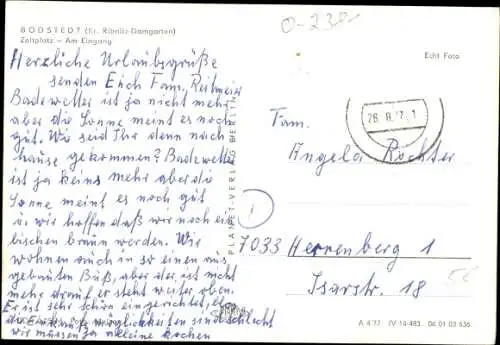 BODSTEDT (Kr. Ribnitz-Damgarten)
Zeltplatz – Am Eingang
Herzliche Urlaubsgrüße
senden Euch Fam. Reitmeier
Badewetter ist ja nicht mehr
aber die Sonne meint es noch
gut. Wie seid Ihr denn nach
hause gekommen? Badewetter
ist ja keins mehr aber die
Sonne meint es noch gut
u. wir hoffen daß wir noch ein
bischen braun werden. Wir
wohnen auch in so einen aus
gebauten Buß, aber der ist nicht
mehr drauf er steht weiter oben.
Er ist sehr schön eingerichtet,
die Einkaufsmöglichkeiten sind schlecht
wir müssen ja alleine kochen
PLANET-VERLAG BERLIN
0-230
Echt Foto
28.8.77
Fam.
Angela Richter
7033 Herrenberg 1
Isarstr. 18
A 4/77 IV-14-483 04 01 03 536